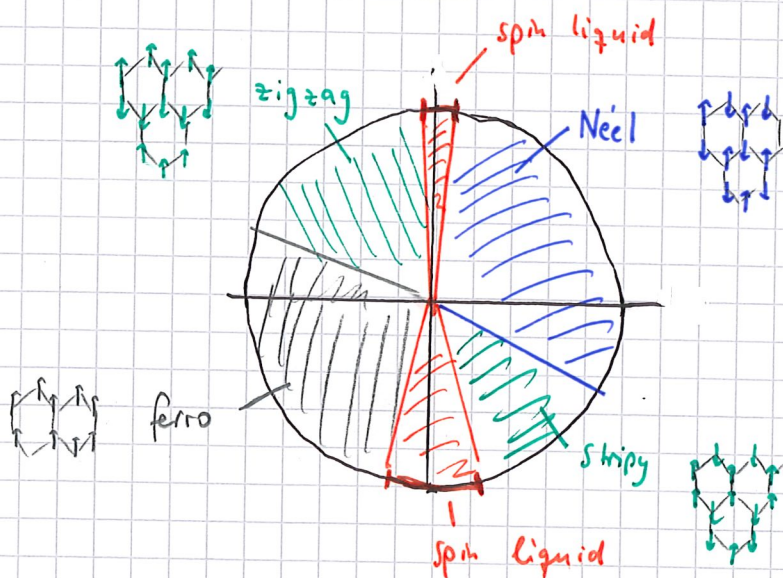 spin liquid
zigzag
Néel
ferro
stripy
spin liquid